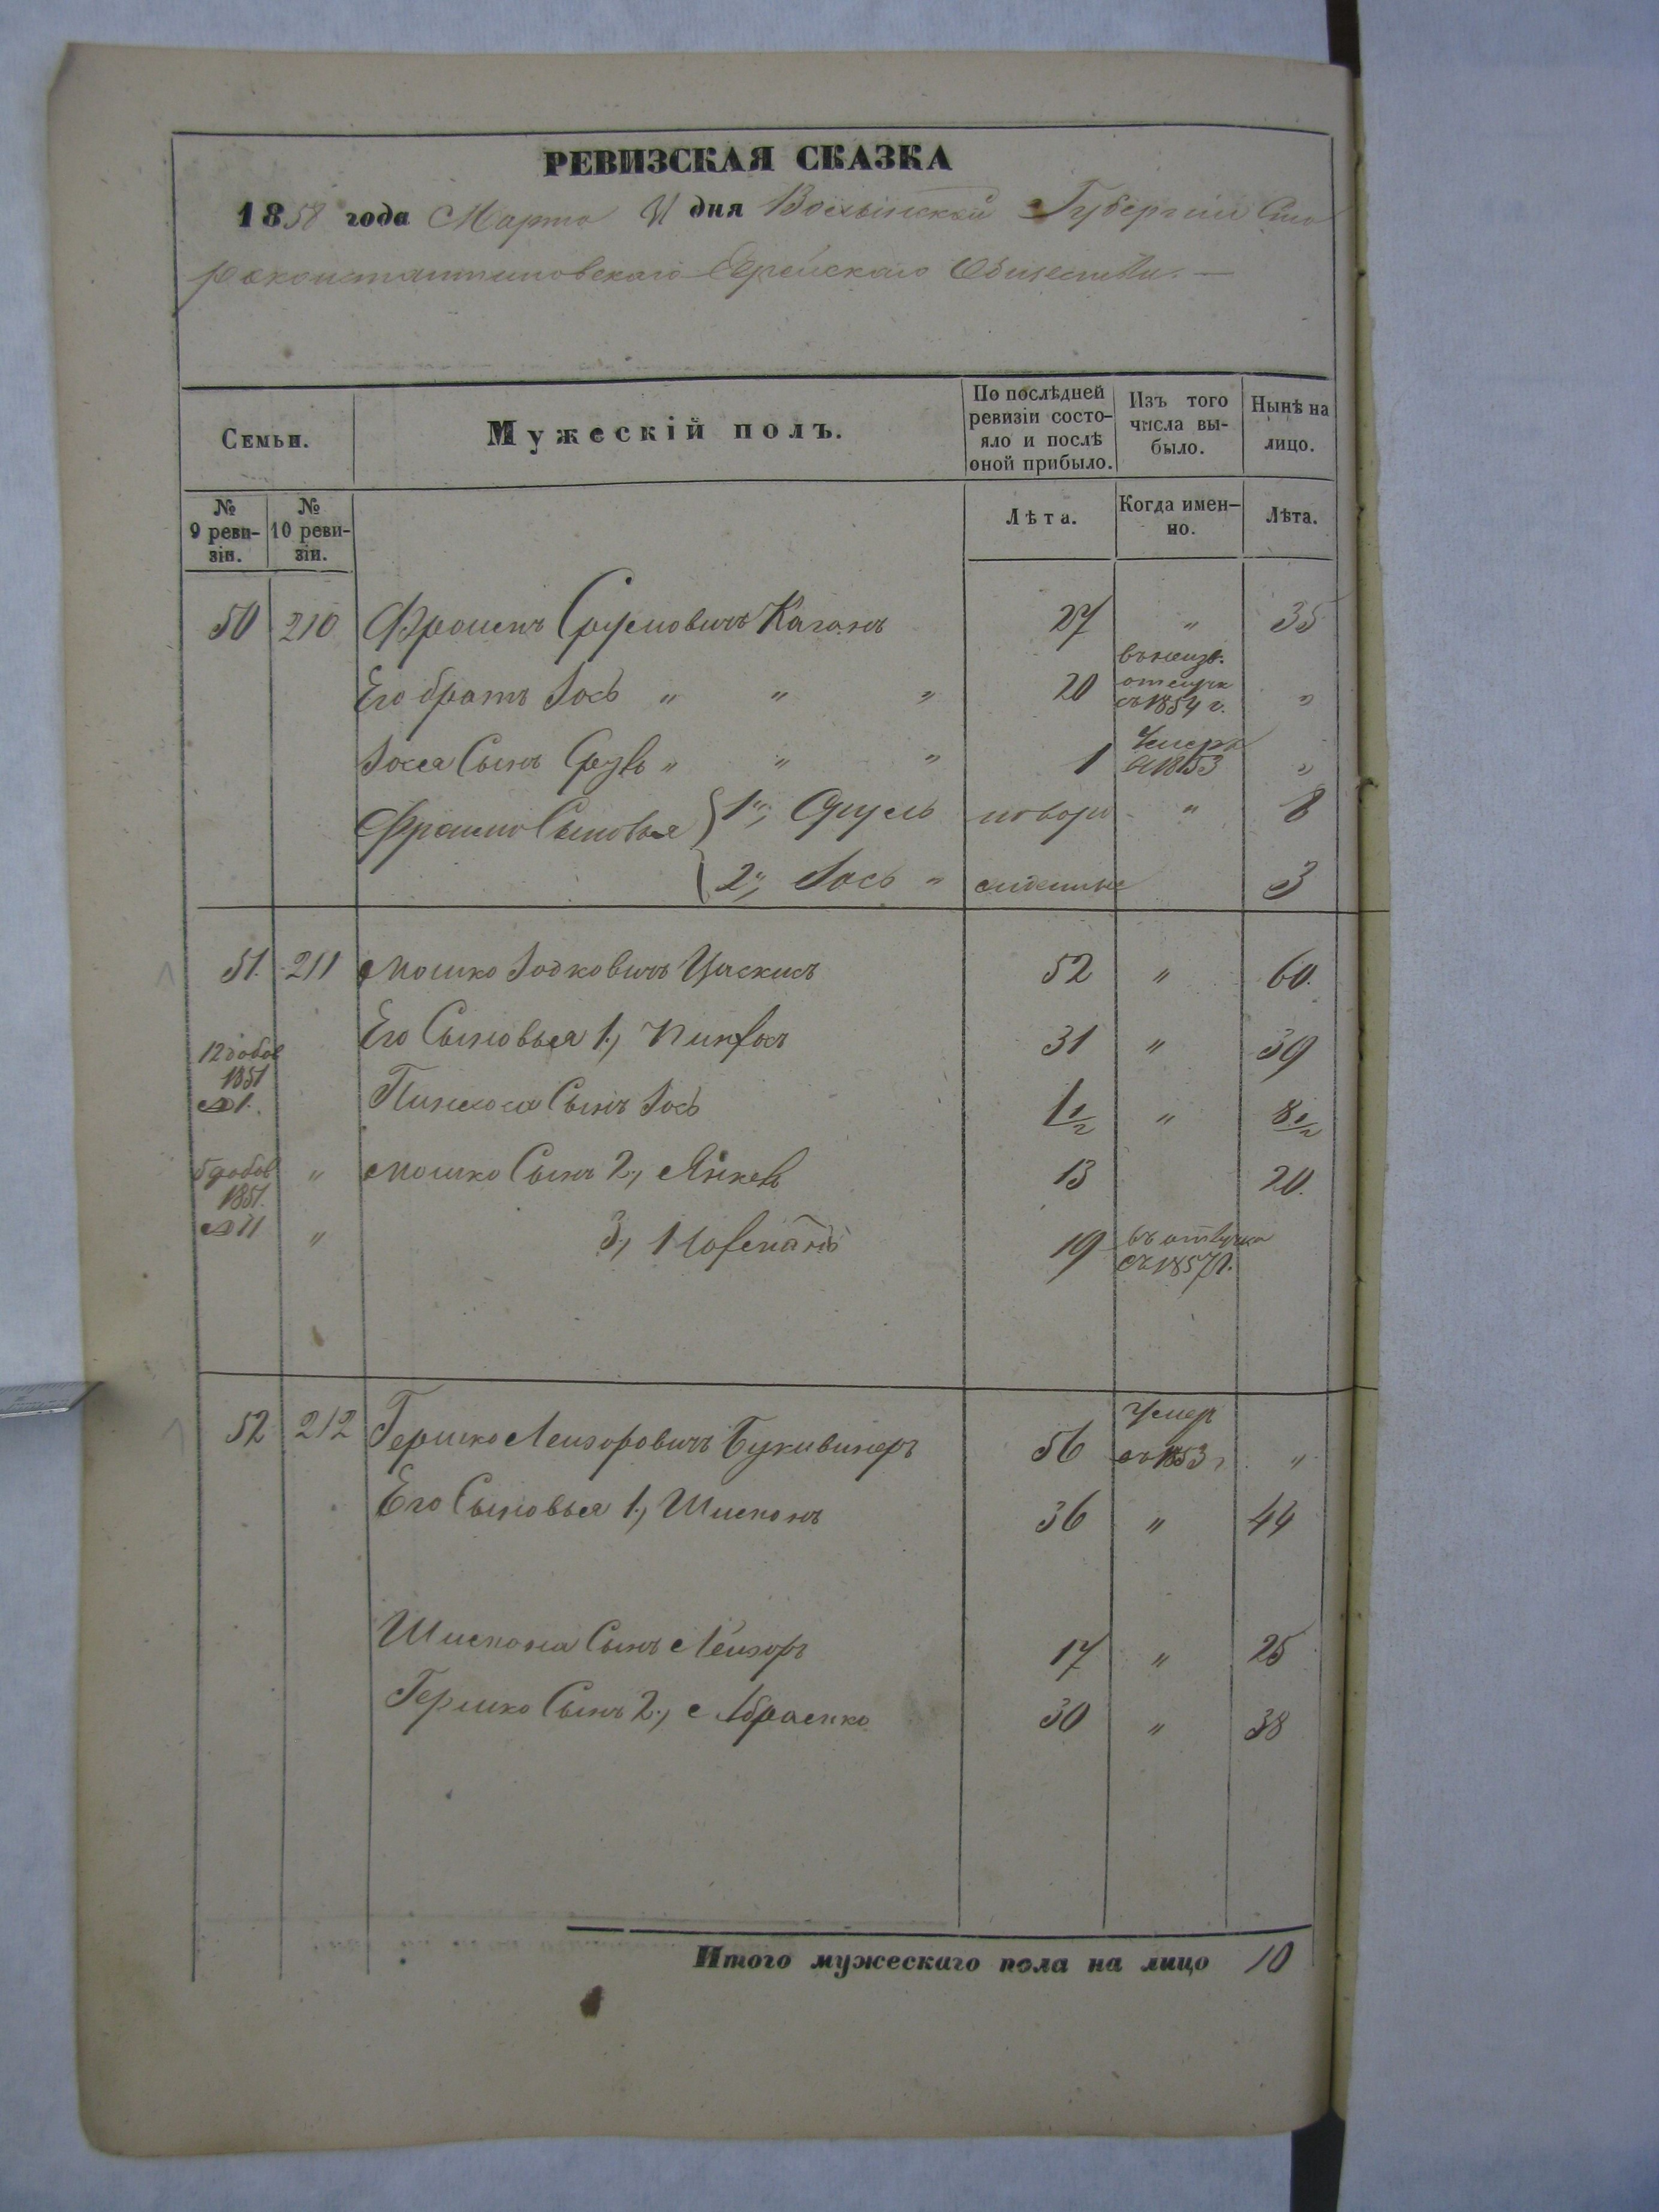 РЕВИЗСКАЯ СКАЗКА
1858 года Марта дня Волынской Губернiи Ста
роконстантиновскаго Еврейскаго Общества. —
Семьи.
Мужескiй полъ.
По послѣдней ревизiи состо-
яло и послѣ
оной прибыло.
Изъ того
числа вы-
было.
Нынѣ на
лицо.
№
9 реви-
зiи.
№
10 реви-
зiи.
Лѣта.
Когда имен-
но.
Лѣта.
50 210 Фроимъ Сруловичъ Каганъ 27 " 35
Его братъ Iось " " " 20 въ неизв. отлучк съ 1854 г. "
Сынъ " " " 1 Умеръ 1853 "
Фроима Сыновья 1", Сруль новоро " 8
2", Iось " 3
51. 211 Мошко Iосковичъ 52 " 60.
Его Сыновья 1., Пинхосъ 31 " 39
12 добов
1851
№ 1.
Пинхоса Сынъ Iось 1 1/2 " 8 1/2
5 добов
1851.
№ 11
" Мошко Сынъ 2., Янкель 13 20.
" 3., 19 въ отлучкѣ съ 1857 г.
52 212 Гершко Лейзоровичъ Букивинеръ 56 Умер съ 1853 г "
Его Сыновья 1., 36 " 44
Сынъ Лейзоръ 17 " 25
Гершко Сынъ 2., Абрамко 30 " 38
Итого мужескаго пола на лицо 10